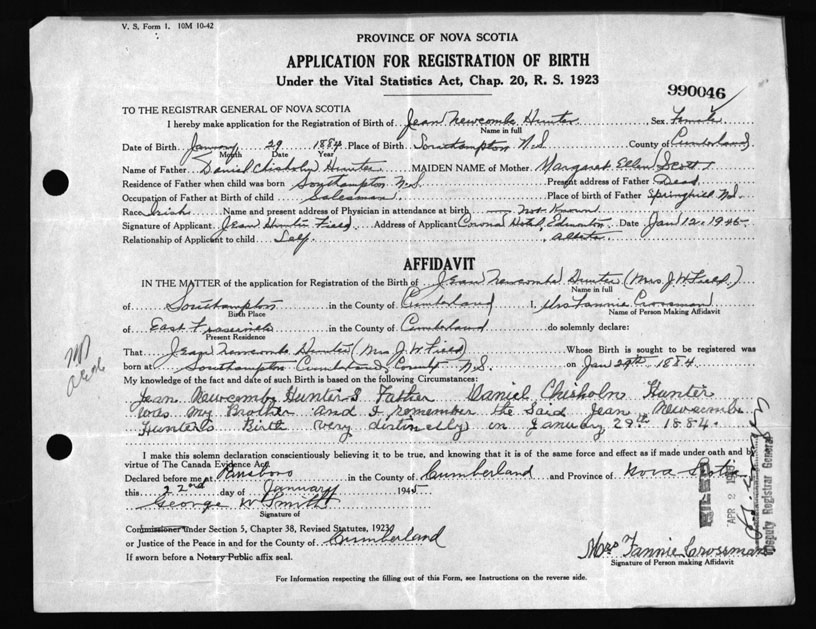 V. S. Form 1. 10M 10-42
PROVINCE OF NOVA SCOTIA
APPLICATION FOR REGISTRATION OF BIRTH
Under the Vital Statistics Act, Chap. 20, R. S. 1923
990046
TO THE REGISTRAR GENERAL OF NOVA SCOTIA
I hereby make application for the Registration of Birth of Jean Newcombe Hunter Sex Female
Name in full
Date of Birth January 29 1884 Place of Birth Southampton N.S. County of Cumberland
Month Date Year
Name of Father Daniel Chisholm Hunter MAIDEN NAME of Mother Margaret Ellen Scott
Residence of Father when child was born Southampton N.S. Present address of Father Dead
Occupation of Father at Birth of child Salesman Place of birth of Father Springhill N.S.
Race Irish Name and present address of Physician in attendance at birth Not Known
Signature of Applicant Jean Hunter Field Address of Applicant Corona Hotel, Edmonton Date Jan 12, 1945
Relationship of Applicant to child Self Alberta
AFFIDAVIT
IN THE MATTER of the application for Registration of the Birth of Jean Newcombe Hunter (Mrs J. W. Field)
Name in full
of Southampton in the County of Cumberland I, Mrs Fannie Crossman
Birth Place Name of Person Making Affidavit
of East in the County of Cumberland do solemnly declare:
Present Residence
That Jean Newcombe Hunter (Mrs J. W. Field) Whose Birth is sought to be registered was
born at Southampton Cumberland County N.S. on Jan 29th 1884
My knowledge of the fact and date of such Birth is based on the following Circumstances:
Jean Newcombe Hunter's Father Daniel Chisholm Hunter
was my Brother and I remember the said Jean Newcombe
Hunter's Birth very distinctly on January 29th 1884.
I make this solemn declaration conscientiously believing it to be true, and knowing that it is of the same force and effect as if made under oath and by
virtue of The Canada Evidence Act.
Declared before me at Parrsboro in the County of Cumberland and Province of Nova Scotia
this 22nd day of January 1945
George W Smith
Signature of
Commissioner under Section 5, Chapter 38, Revised Statutes, 1923
or Justice of the Peace in and for the County of Cumberland
If sworn before a Notary Public affix seal.
Mrs Fannie Crossman
Signature of Person making Affidavit
For Information respecting the filling out of this Form, see Instructions on the reverse side.
FILED
APR 2
Deputy Registrar General